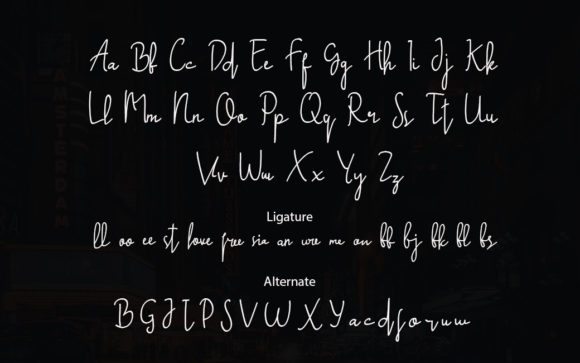 Aa Bb Cc Dd Ee Ff Gg Hh Ii Jj Kk
Ll Mm Nn Oo Pp Qq Rr Ss Tt Uu
Vv Ww Xx Yy Zz
Ligature
ll oo ee st love free sia an wre me on bb bj bk bl bs
Alternate
B G J I P S V W X Y a c d f o r u w
AMSTERDAM